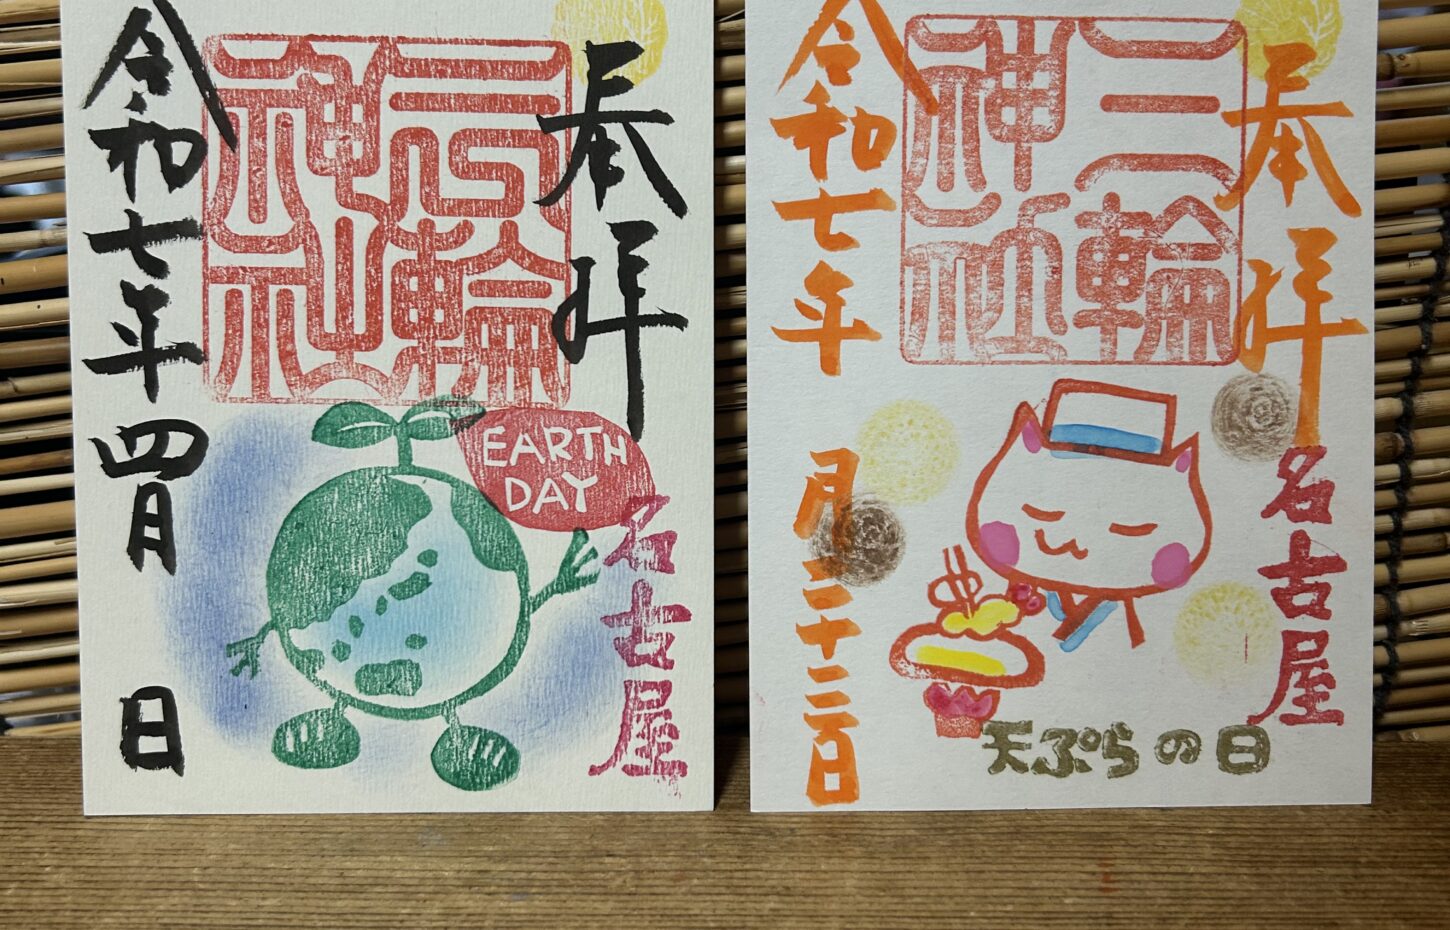 奉拝
三輪
神社
令和七年 四月 日
EARTH
DAY
名古屋
奉拝
三輪
神社
令和七年 月二十三日
名古屋
天ぷらの日